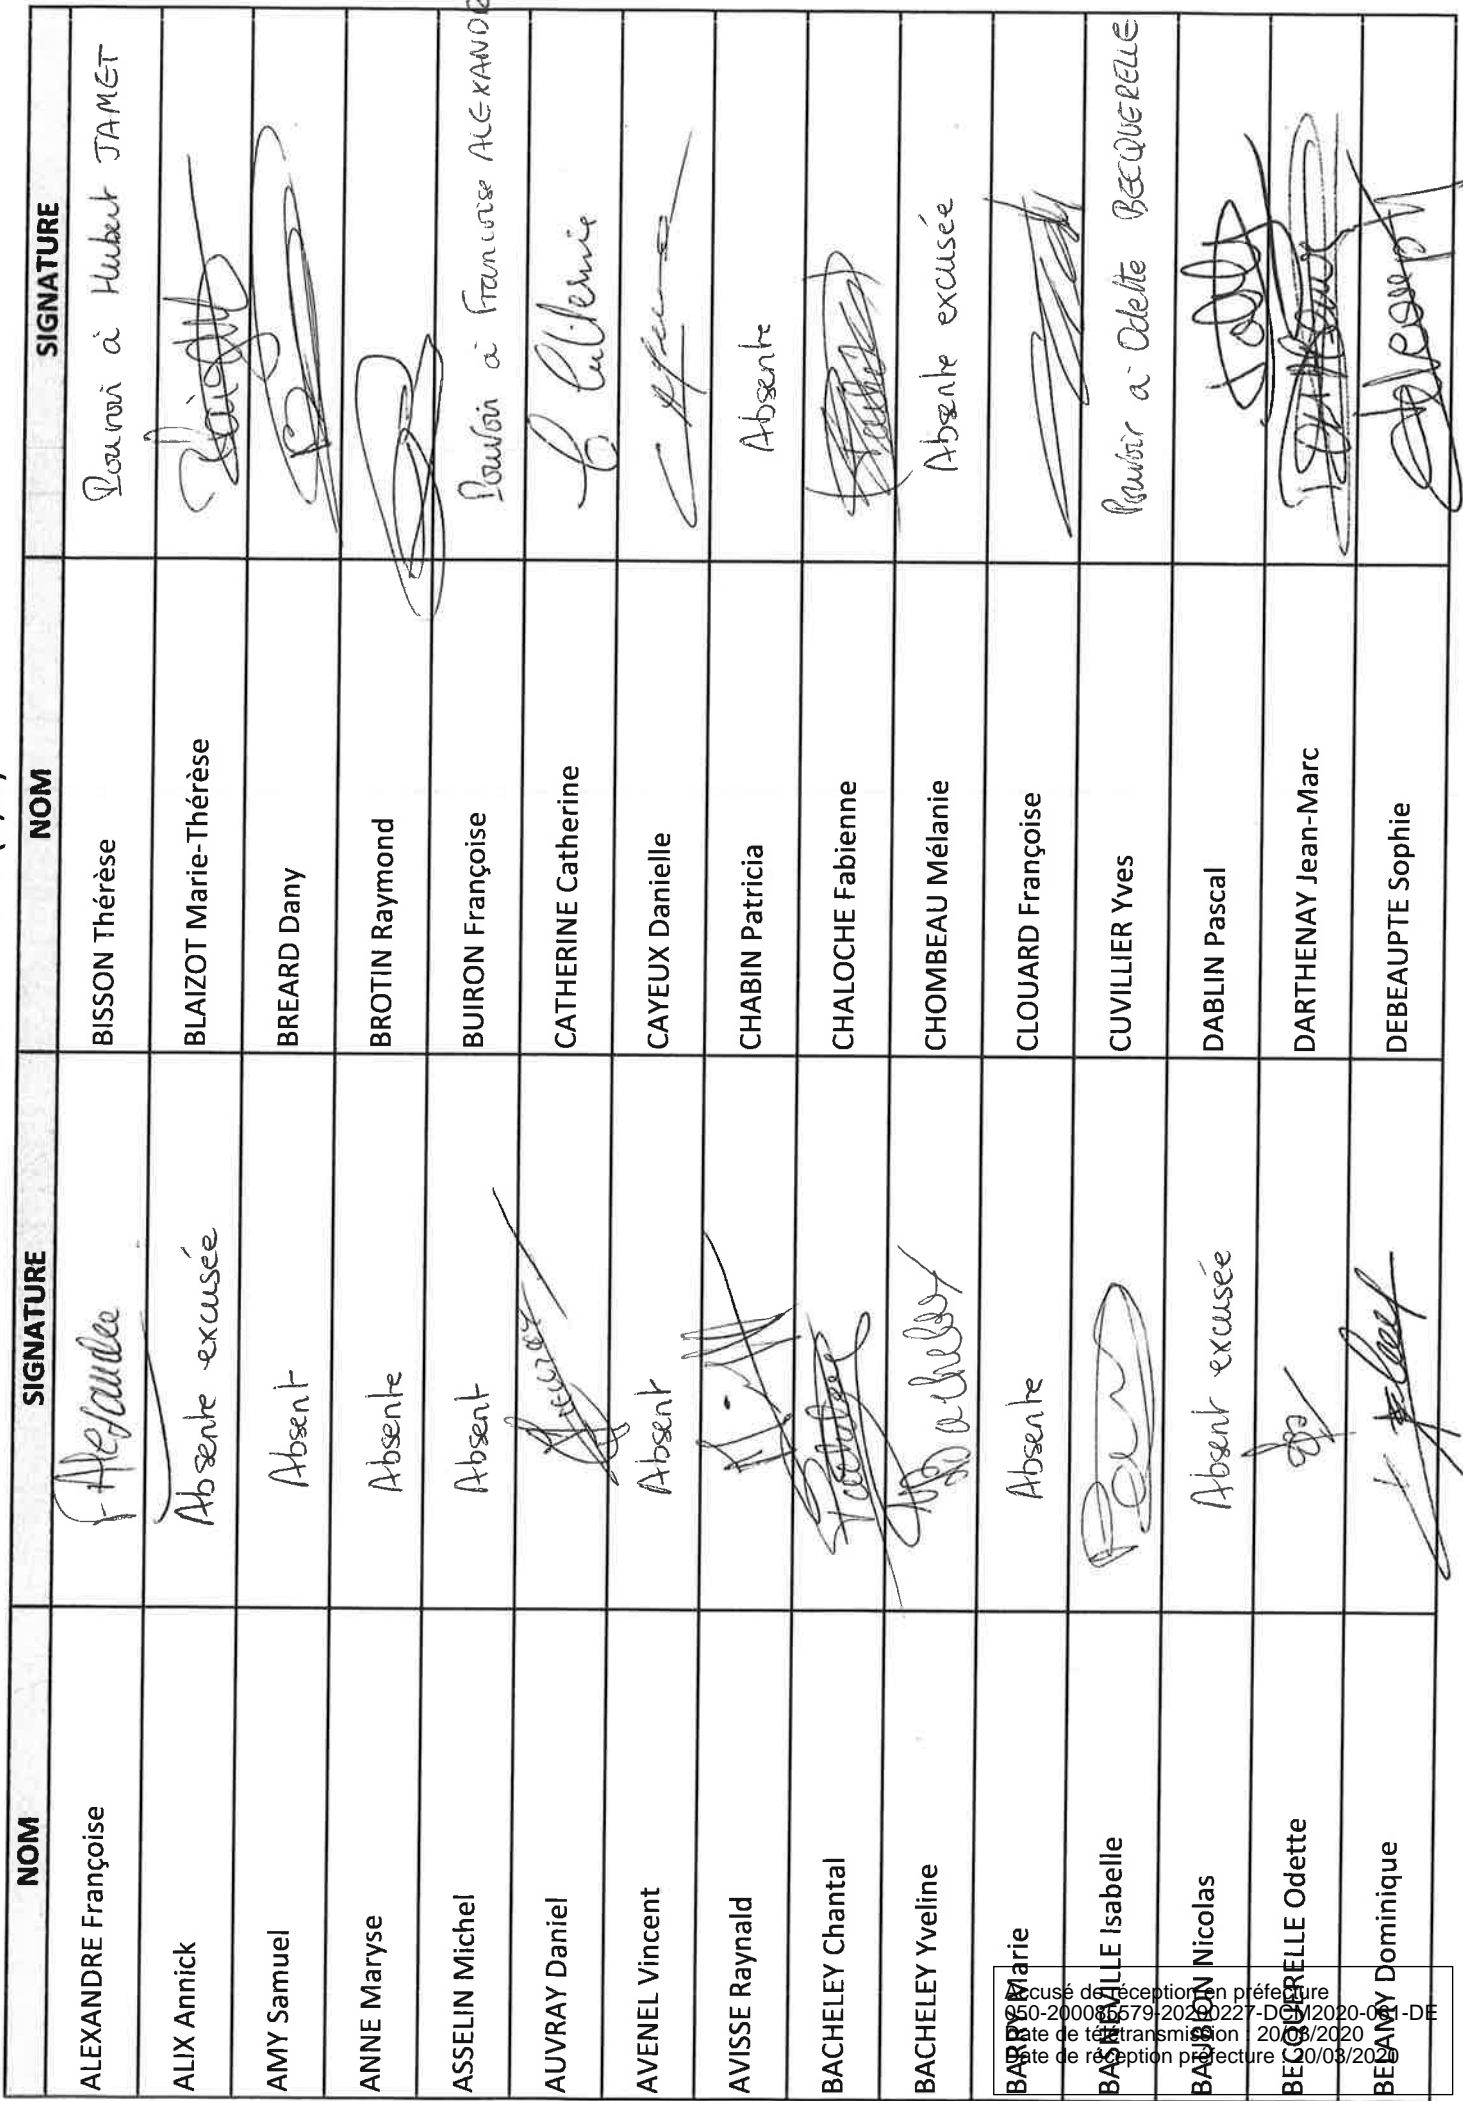 NOM SIGNATURE NOM SIGNATURE
ALEXANDRE Françoise Alexandre BISSON Thérèse Pouvoir à Hubert JAMET
ALIX Annick Absente excusée BLAIZOT Marie-Thérèse
AMY Samuel Absent BREARD Dany
ANNE Maryse Absente BROTIN Raymond
ASSELIN Michel Absent BUIRON Françoise Pouvoir à Francoise ALEXANDR
AUVRAY Daniel CATHERINE Catherine C Catherine
AVENEL Vincent Absent CAYEUX Danielle
AVISSE Raynald CHABIN Patricia Absente
BACHELEY Chantal CHALOCHE Fabienne
BACHELEY Yveline CHOMBEAU Mélanie Absente excusée
BARRY Marie Absente CLOUARD Françoise
BASNEVILLE Isabelle CUVILLIER Yves Pouvoir à Odette BECQUERELLE
BAUBION Nicolas Absent excusée DABLIN Pascal
BECQUERELLE Odette DARTHENAY Jean-Marc
BELAMY Dominique DEBEAUPTE Sophie
Accusé de réception en préfecture
050-200085579-20200227-DCM2020-031-DE
Date de télétransmission : 20/03/2020
Date de réception préfecture : 20/03/2020